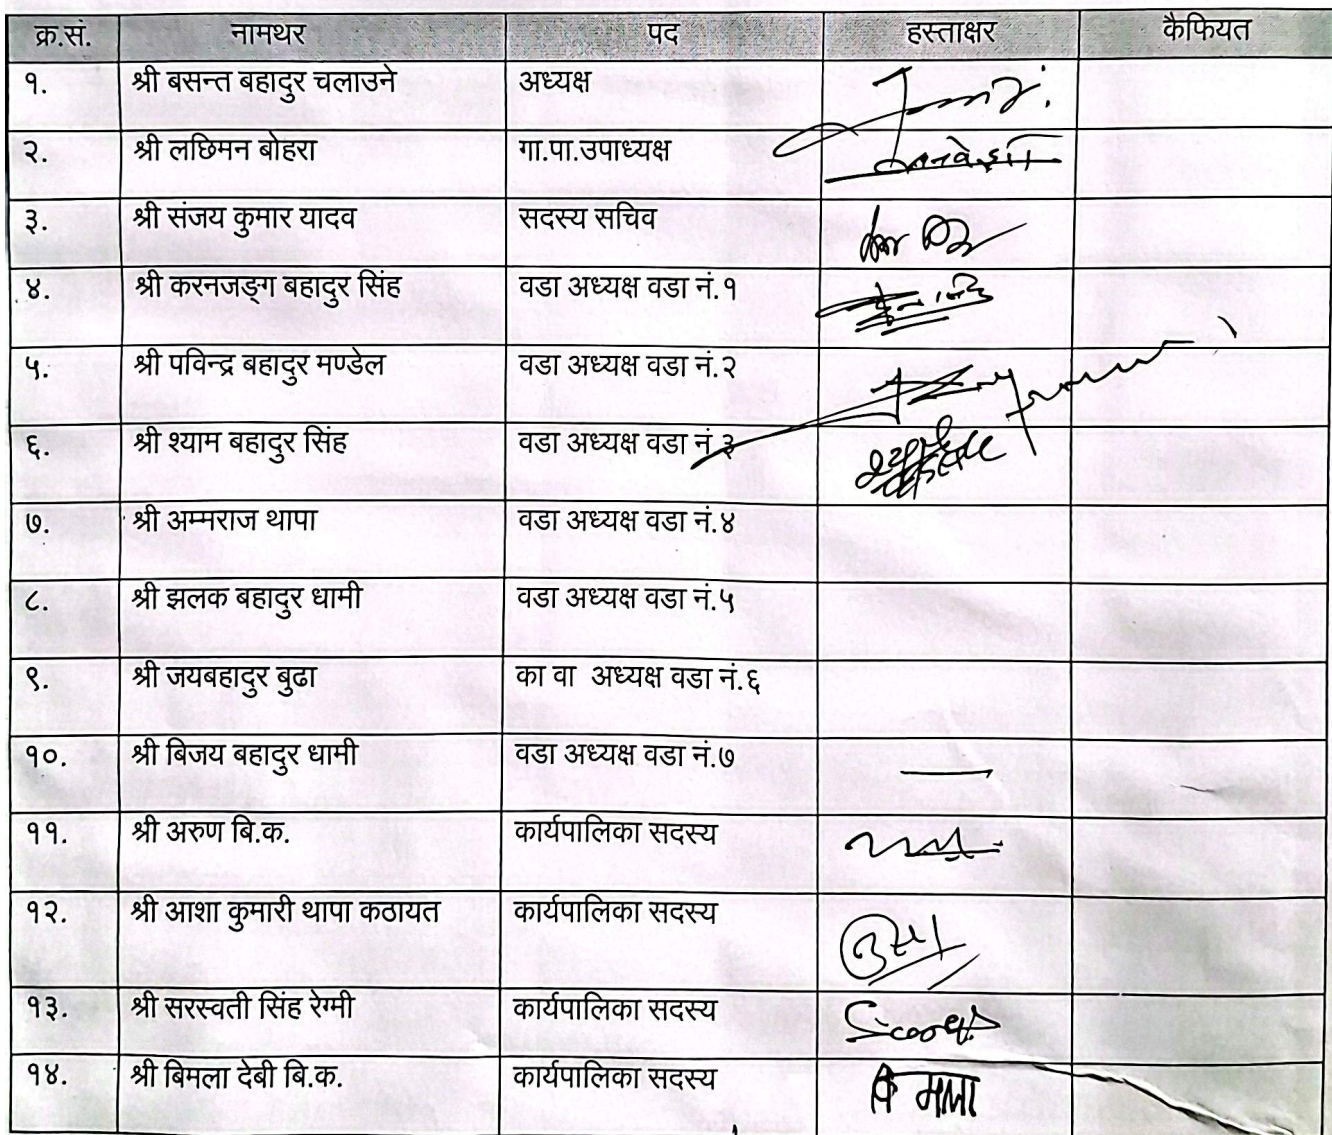 क्र.सं. नामथर पद हस्ताक्षर कैफियत
१. श्री बसन्त बहादुर चलाउने अध्यक्ष
२. श्री लछिमन बोहरा गा.पा.उपाध्यक्ष
३. श्री संजय कुमार यादव सदस्य सचिव
४. श्री करनजङ्ग बहादुर सिंह वडा अध्यक्ष वडा नं.१
५. श्री पविन्द्र बहादुर मण्डेल वडा अध्यक्ष वडा नं.२
६. श्री श्याम बहादुर सिंह वडा अध्यक्ष वडा नं.३
७. श्री अम्मराज थापा वडा अध्यक्ष वडा नं.४
८. श्री झलक बहादुर धामी वडा अध्यक्ष वडा नं.५
९. श्री जयबहादुर बुढा का वा अध्यक्ष वडा नं.६
१०. श्री बिजय बहादुर धामी वडा अध्यक्ष वडा नं.७
११. श्री अरुण बि.क. कार्यपालिका सदस्य
१२. श्री आशा कुमारी थापा कठायत कार्यपालिका सदस्य
१३. श्री सरस्वती सिंह रेग्मी कार्यपालिका सदस्य
१४. श्री बिमला देबी बि.क. कार्यपालिका सदस्य